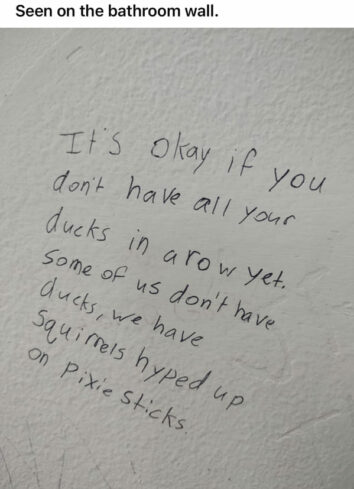 Seen on the bathroom wall.
It's okay if you
don't have all your
ducks in a row yet.
Some of us don't have
ducks, we have
Squirrels hyped up
on Pixie Sticks.